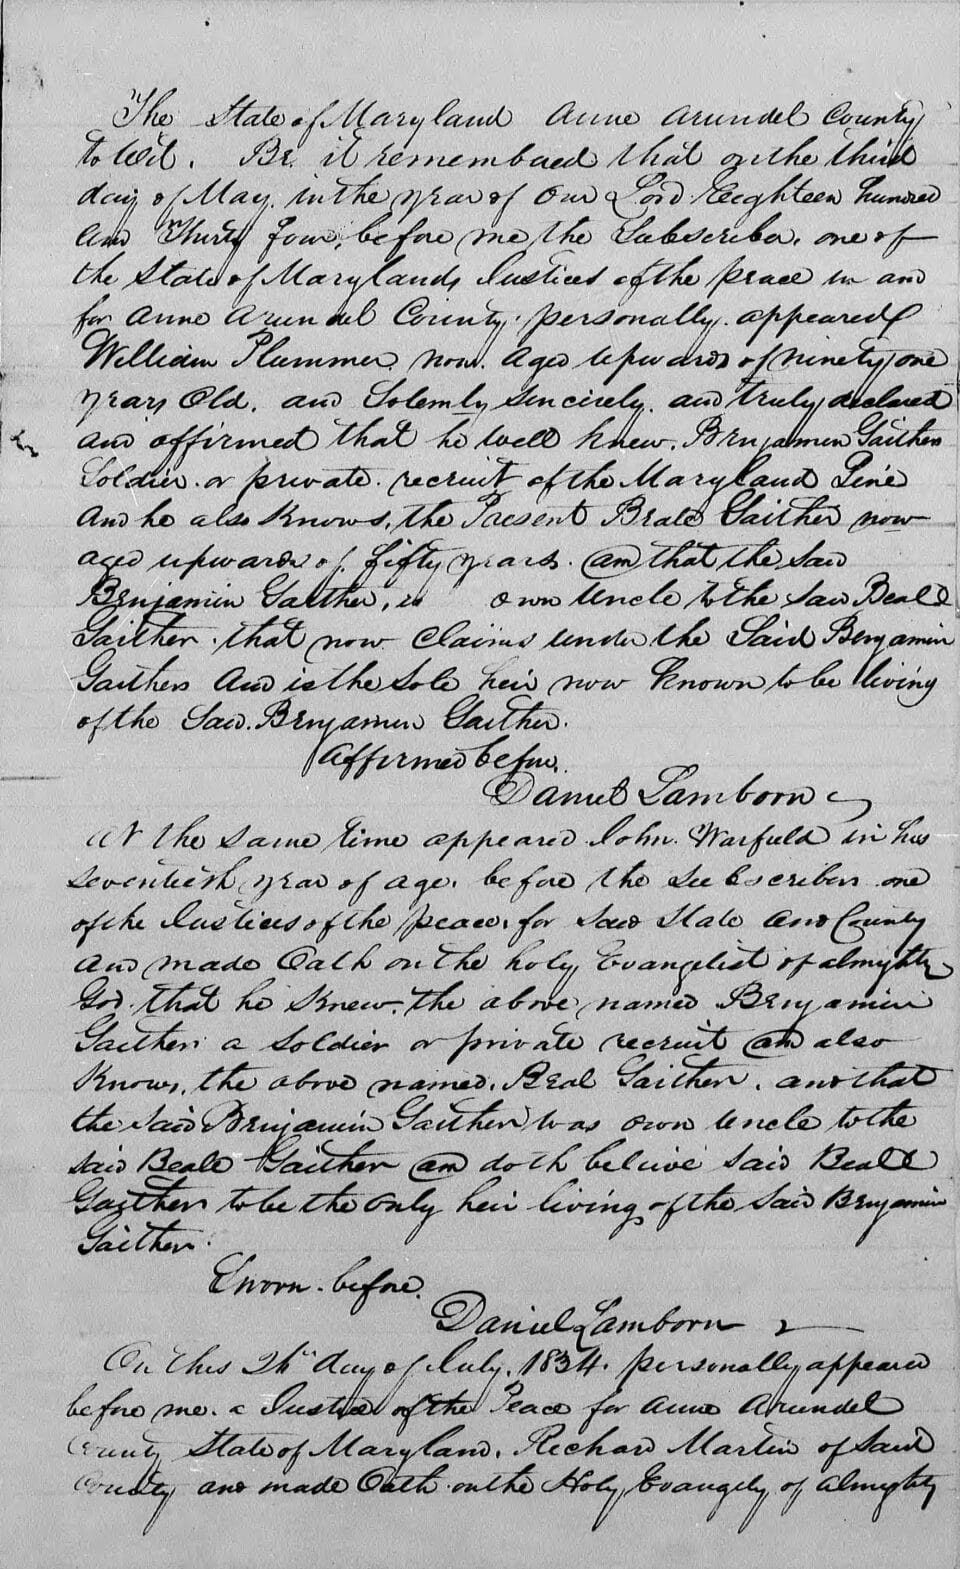 The State of Maryland Anne Arundel County
to Wit. Be it remembered that on the third
day of May in the year of our Lord Eeighteen hundred
and Thirty four, before me the Subscriber, one of
the State of Marylands Justices of the peace in and
for Anne Arundel County personally appeared
William Plummer now aged upwards of ninety one
years Old. and Solemly sincirely and truly declared
and affirmed that he well knew Benjamin Gaither
Soldier or private recruit of the Maryland Line
And he also Knows, the Present Beale Gaither now
aged upwards of fifty years. and that the said
Benjamin Gaither, is own Uncle to the said Beall
Gaither that now Claims under the Said Benjamin
Gaither And is the Sole heir now Known to be living
of the Said Benjamin Gaither.
Affirmed before
Daniel Lamborn
At the same time appeared John Warfield in his
seventieth year of age. before the Subscriber one
of the Justices of the peace, for said State and County
and made Oath on the holy Evangelist of almighty
God that he Knew the above named Benjamin
Gaither a Soldier or private recruit and also
Knows, the above named, Beal Gaither. and that
the Said Benjamin Gaither was own Uncle to the
said Beale Gaither and doth beleive said Beall
Gaither to be the only heir living of the Said Benjamin
Gaither.
Sworn before
Daniel Lamborn
On this 24th day of July, 1834. personally appeared
before me a Justice of the Peace for Anne Arundel
County State of Maryland, Richard Martin of said
County and made Oath on the Holy Evangely of Almighty